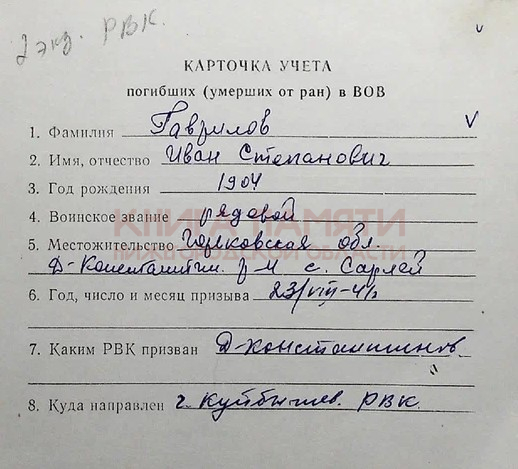 2 экз. РВК.
КАРТОЧКА УЧЕТА
погибших (умерших от ран) в ВОВ
1. Фамилия Гаврилов
2. Имя, отчество Иван Степанович
3. Год рождения 1904
4. Воинское звание рядовой
КНИГА ПАМЯТИ
5. Местожительство Горьковская обл.
НИЖЕГОРОДСКОЙ ОБЛАСТИ
Д-Константин. р-н с. Сарлей
6. Год, число и месяц призыва 23/VIII-41г
7. Каким РВК призван Д-Константинов.
8. Куда направлен г. Куйбышев. РВК.